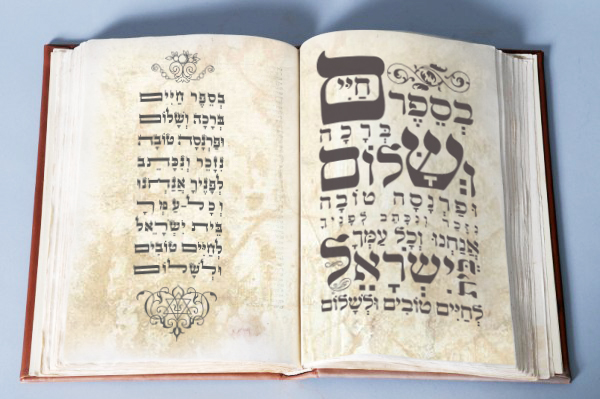 בְּסֵפֶר חַיִּים
בְּרָכָה
וְשָׁלוֹם
וּפַרְנָסָה טוֹבָה
נִזָּכֵר וְנִכָּתֵב לְפָנֶיךָ
אֲנַחְנוּ וְכָל עַמְּךָ
בֵּית יִשְׂרָאֵל
לְחַיִּים טוֹבִים וּלְשָׁלוֹם
בְּסֵפֶר חַיִּים
בְּרָכָה וְשָׁלוֹם
וּפַרְנָסָה טוֹבָה
נִזָּכֵר וְנִכָּתֵב
לְפָנֶיךָ אֲנַחְנוּ
וְכָל-עַמְּךָ
בֵּית יִשְׂרָאֵל
לְחַיִּים טוֹבִים
וּלְשָׁלוֹם